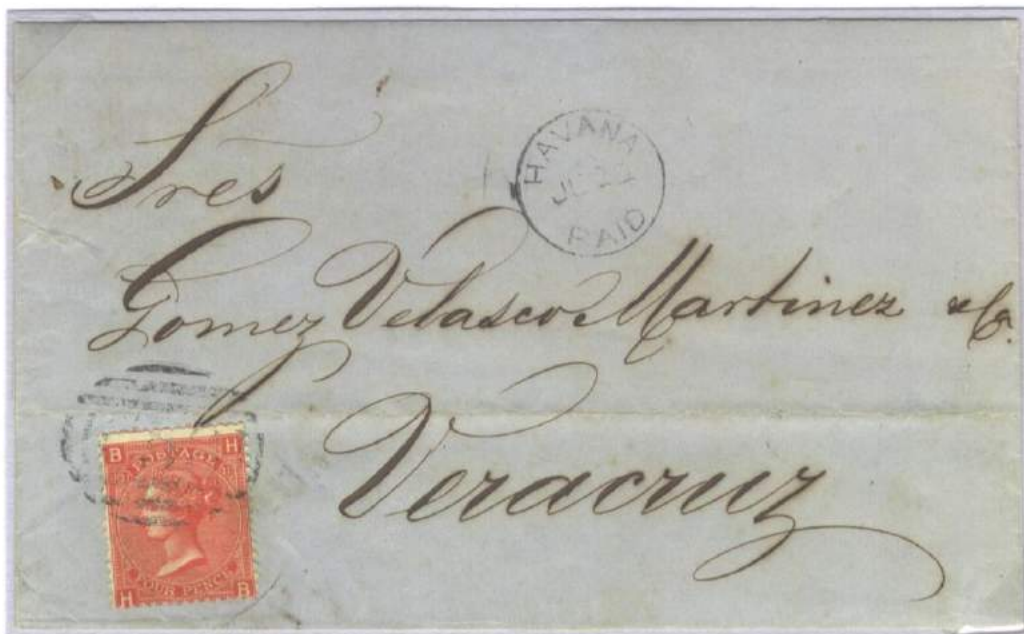 HAVANA
PAID
Sres
Gomez Velasco Martinez & Ca.
Veracruz
B H
POSTAGE
FOUR PENCE
H B